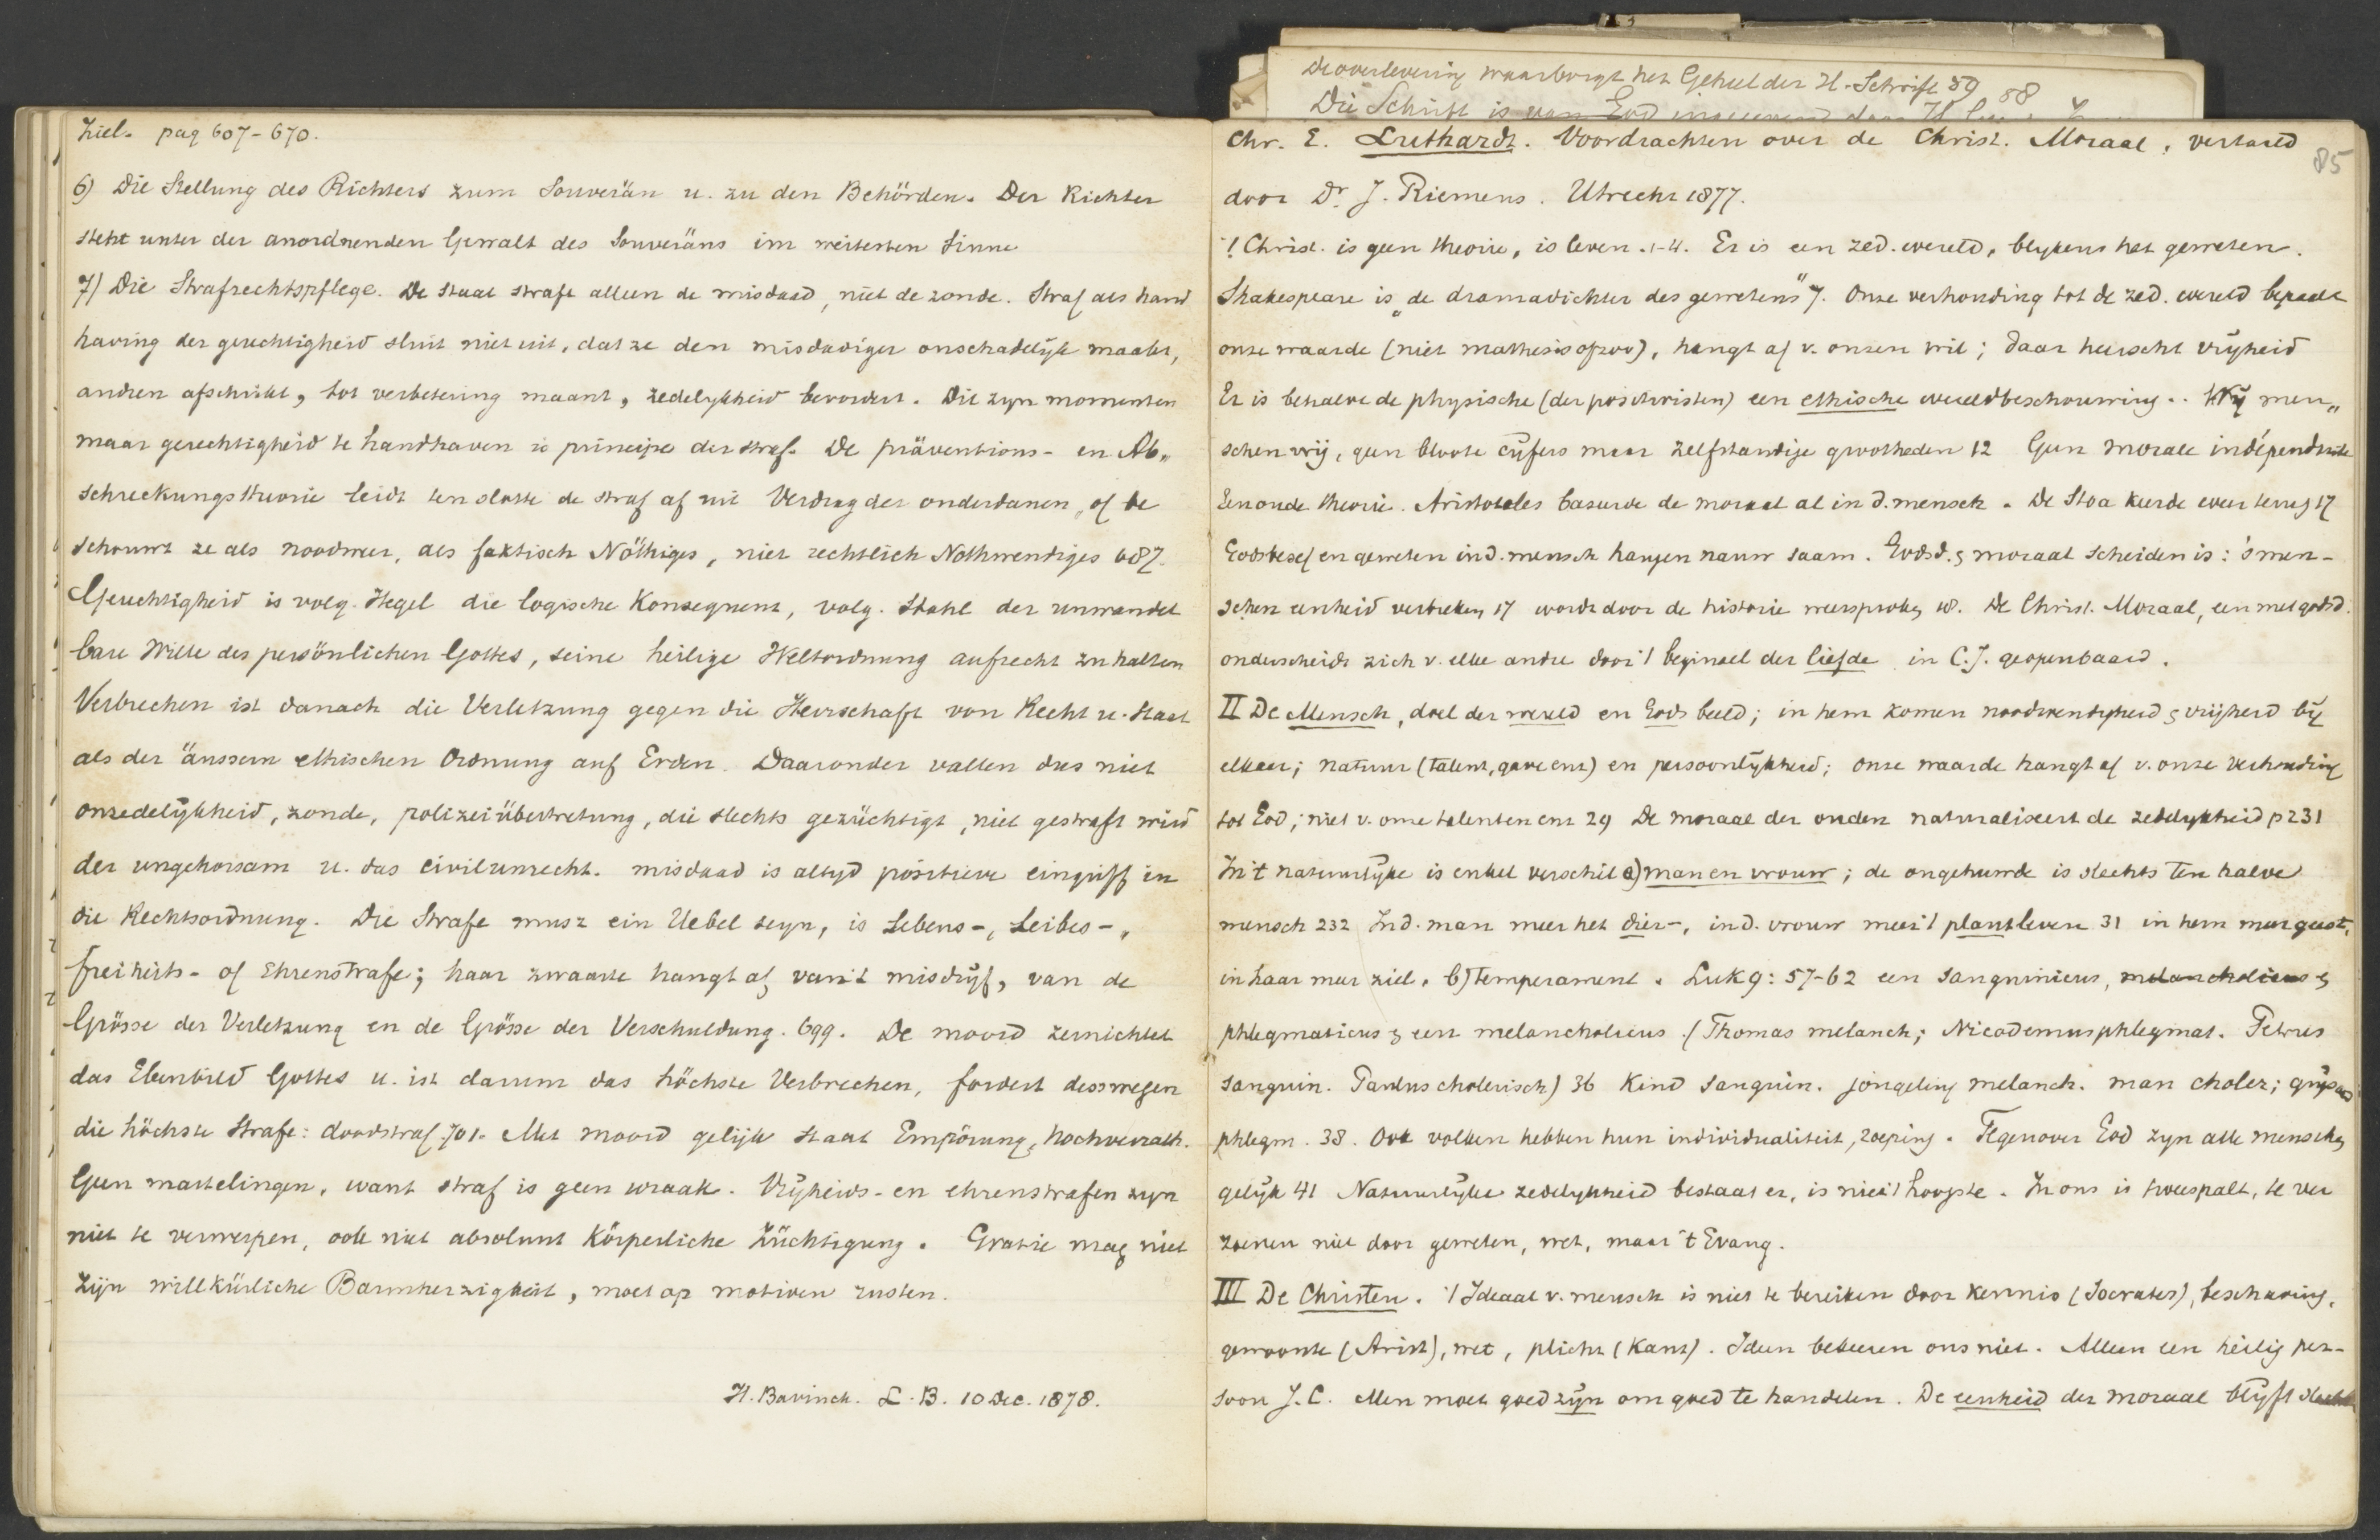 ziel. pag 607-670.
6) Die Stellung des Richters zum Souverän u. zu den Behörden. Der Richter
steht unter der anordnenden Gewalt des Souveräns im weitesten Sinne
7) Die Strafrechtspflege. De staat straft alleen de misdaad, niet de zonde. Straf als hand
having der gerechtigheid sluit niet uit, dat ze den misdadiger onschadelijk maakt,
andren afschrikt, tot verbetering maant, zedelykheid bevordert. Dit zyn momenten
maar gerechtigheid te handhaven is principe der straf. De präventions- en Ab„
schreckungstheorie leidt ten slotte de straf af uit Verdrag der onderdanen, of be
schouwt ze als noodweer, als faktisch Nöthiges, niet rechtlich Nothwendiges 687.
Gerechtigheid is volg. Hegel die logische Konsequenz, volg. Stahl der unwandel
bare Wille des persönlichen Gottes, seine heilige Weltordnung aufrecht zu halten
Verbrechen ist danach die Verletzung gegen die Herrschaft von Recht u. Staat
als der äussern ethischen Ordnung auf Erden. Daaronder vallen dus niet
onzedelijkheid, zonde, polizeiübertretung, die slechts gezüchtigt, niet gestraft wird
der ungehorsam u. das civilunrecht. misdaad is altyd positieve eingriff in
die Rechtsordnung. Die Strafe musz ein Uebel seyn, is Lebens-, Leibes-,
freiheits- of Ehrenstrafe; haar zwaarte hangt af van 't misdrijf, van de
Grösse der Verletzung en de Grösse der Verschuldung. 699. De moord zernichtet
das Ebenbild Gottes u. ist darum das höchste Verbrechen, fordert desswegen
die höchste Strafe: doodstraf. 701. Met moord gelijk staat Empörung, hochverrath.
Geen martelingen, want straf is geen wraak. Vrijheids- en ehrenstrafen zyn
niet te verwerpen, ook niet absoluut körperliche Züchtigung. Gratie mag niet
zijn willkürliche Barmherzigkeit, moet op motiven rusten.
H. Bavinck. L.B. 10 Dec. 1878.
De overlevering waarborgt het Geheel der H. Schrift 59 88
Die Schrift is van God
Chr. E. Luthardt. Voordrachten over de Christ. Moraal, vertaald
85
door Dr. J. Riemens. Utrecht 1877.
't Christ. is geen theorie, is leven. 1-4. Er is een zed. wereld, blykens het geweten.
Shakespeare is „de dramadichter des gewetens" 7. Onze verhouding tot de zed. wereld bepaalt
onze waarde (niet mathesis ), hangt af v. onzen wil; daar heerscht vrijheid
Er is behalve de physische (der positivisten) een ethische wereldbeschouwing.. Wij men„
schen vrij, geen bloote cijfers maar zelfstandige grootheden 12 Geen morale indépendante
Een oude theorie. Aristoteles baseerde de moraal al in d. mensch. De Stoa keerde weer terug 17
Godsbesef en geweten in d. mensch hangen nauw saam. Godsd. & moraal scheiden is: 's men-
schen eenheid verbreken 17 wordt door de historie weersproken 18. De Christ. Moraal, een met godsd.
onderscheidt zich v. elke andre door 't beginsel der liefde in C.J. geopenbaard.
II De Mensch, doel der wereld en Gods beeld; in hem komen noodwendigheid & vrijheid bij
elkaar; natuur (talent, gave enz) en persoonlijkheid; onze waarde hangt af v. onze verhouding
tot God; niet v. onze talenten enz 29 De moraal der ouden naturaliseert de zedelykheid p 231
In 't natuurlijke is enkel verschil a) man en vrouw; de ongehuwde is slechts ten halve
mensch 232 In d. man meer het dier-, in d. vrouw meer 't plantleven 31 in hem meer geest,
in haar meer ziel. b) temperament. Luk 9: 57-62 een sanguinicus, melancholicus &
phlegmaticus & een melancholicus. (Thomas melanch; Nicodemus phlegmat. Petrus
sanguin. Paulus cholerisch) 36 Kind sanguin. jongeling melanch. man choler; grijsaard
phlegm. 38. Ook volken hebben hun individualiteit, roeping. Tegenover God zyn alle menschen
gelijk 41 Natuurlijke zedelykheid bestaat er, is niet 't hoogste. In ons is tweespalt, te ver
zoenen niet door geweten, wet, maar 't Evang.
III De Christen. 't Ideaal v. mensch is niet te bereiken door kennis (Socrates), beschaving,
gewoonte (Arist), wet, plicht (Kant). Ideen bekeeren ons niet. Alleen een heilig per-
soon J.C. Men moet goed zijn om goed te handelen. De eenheid der moraal blijft slechts